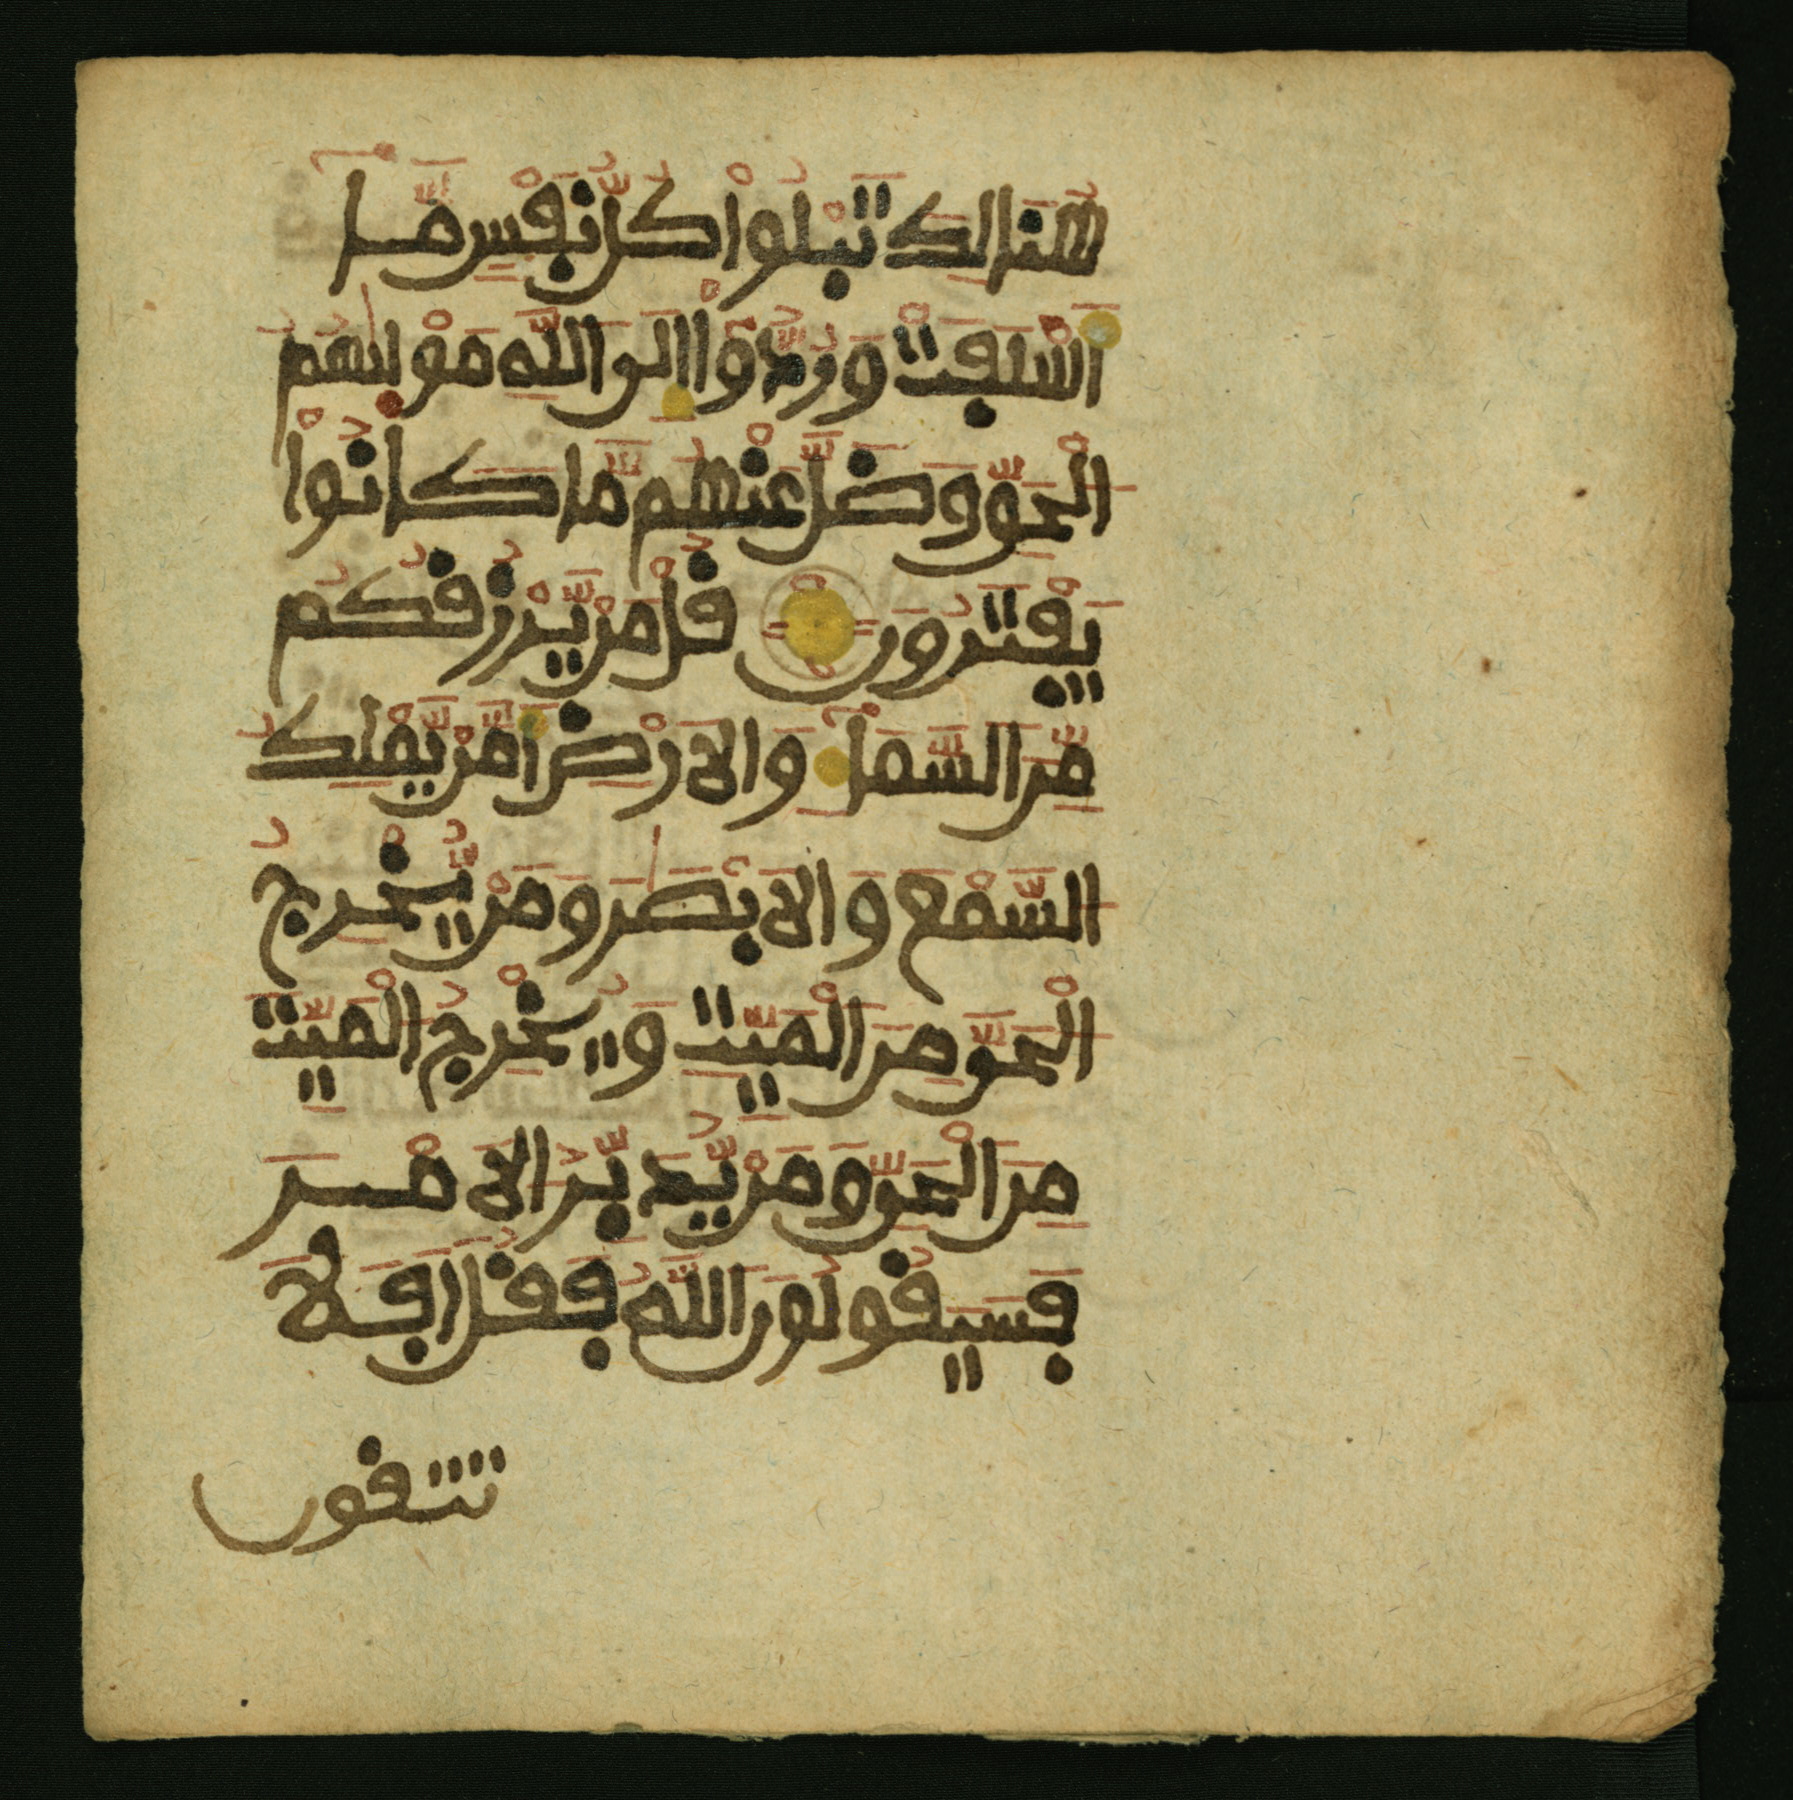 هُنَالِكَ تَبْلُواْ كُلُّ نَفْسٍ مَّا
أَسْلَفَتْ وَرُدُّوٓاْ إِلَى اَللَّهِ مَوْلَىٰهُمُ
اُلْحَقِّ وَضَلَّ عَنْهُم مَّا كَانُواْ
يَفْتَرُونَ قُلْ مَنْ يَّرْزُقُكُم
مِّنَ اَلسَّمَآءِ وَالَارْضِ أَمَّنْ يَّمْلِكُ
اُلسَّمْعَ وَالَابْصَٰرَ وَمَنْ يُّخْرِجُ
اُلْحَىَّ مِنَ اَلْمَيِّتِ وَيُخْرِجُ اُلْمَيِّتَ
مِنَ اَلْحَىِّ وَمَنْ يُّدَبِّرُ الَامْرَ
فَسَيَقُولُونَ اَللَّهُ فَقُلَ اَفَلَا
تتقون